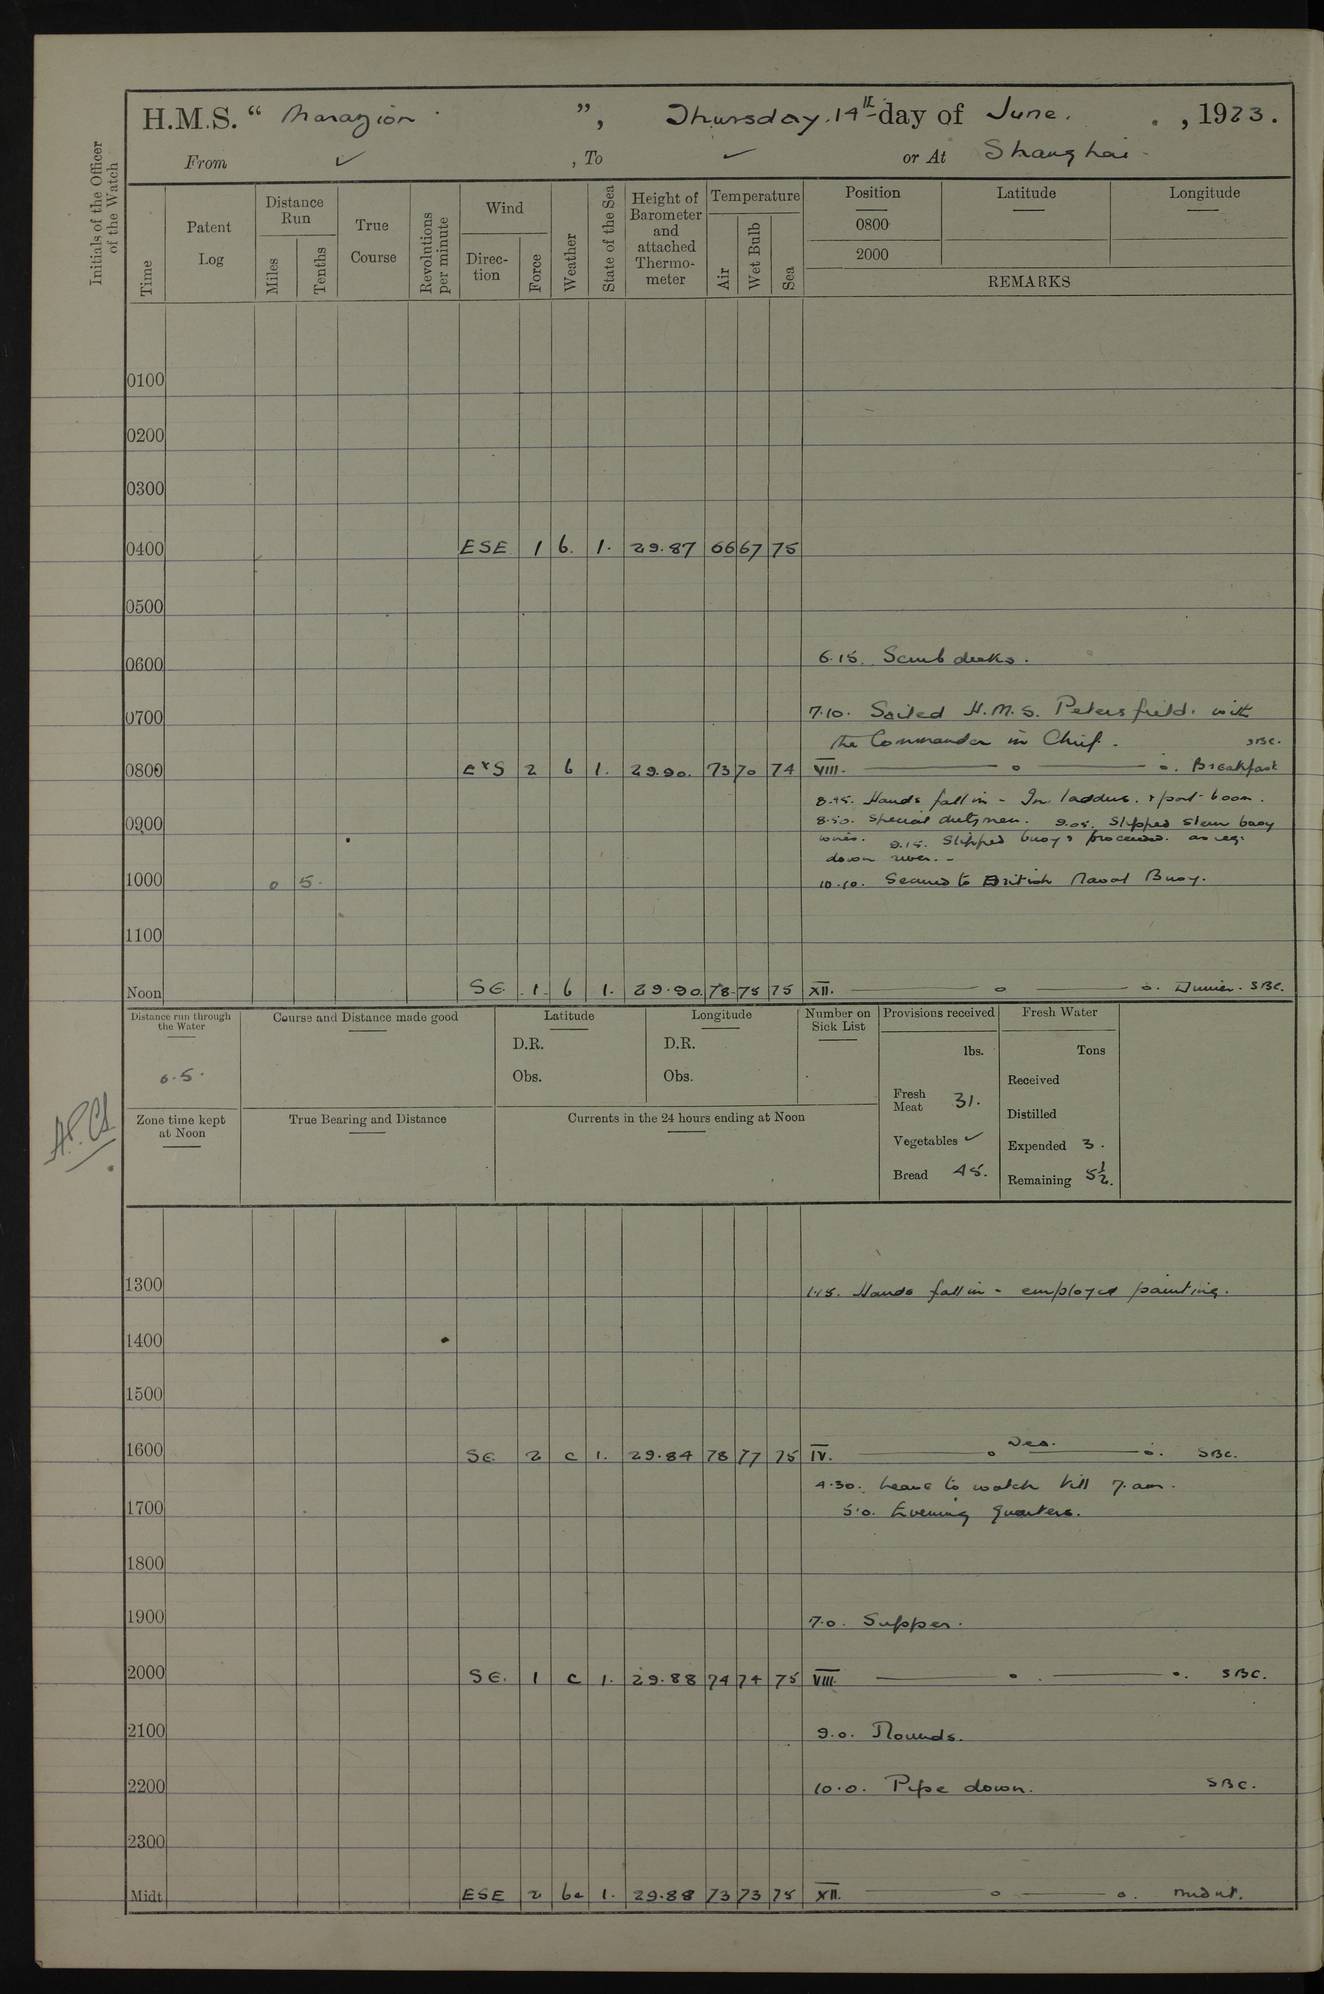 H.M.S. “ Marazion ”, Thursday. 14th day of June. , 1923.
From ✓ , To ✓ or At Shanghai
Initials of the Officer of the Watch
Time
Patent Log
Distance Run
Miles
Tenths
True Course
Revolutions per minute
Wind
Direction
Force
Weather
State of the Sea
Height of Barometer and attached Thermometer
Temperature
Air
Wet Bulb
Sea
Position
0800
2000
Latitude
Longitude
REMARKS
0100
0200
0300
0400 ESE 1 b. 1. 29.87 66 67 75
0500
0600 6.15. Scrub decks.
0700 7.10. Sailed H.M.S. Petersfield. with
the Commander in Chief. SBC.
0800 ExS 2 b 1. 29.90. 73 70 74 VIII. o o. Breakfast
8.45. Hands fall in - In ladders. & port boom.
0900 8.50. Special dutymen. 9.05. Slipped stern buoy
wires. 9.15. Slipped buoy & proceeded. as req.
down river. -
1000 0 5. 10.10. Secured to British Naval Buoy.
1100
Noon SE 1. b 1. 29.90. 78 75 75 XII. o o. Dinner. SBC.
Distance run through the Water
0.5.
Course and Distance made good
Latitude
D.R.
Obs.
Longitude
D.R.
Obs.
Number on Sick List
Provisions received
lbs.
Fresh Meat 31.
Vegetables ✓
Bread 45.
Fresh Water
Tons
Received
Distilled
Expended 3.
Remaining 5½.
Zone time kept at Noon
True Bearing and Distance
Currents in the 24 hours ending at Noon
1300 1.15. Hands fall in - employed painting.
1400
1500
1600 SE 2 c 1. 29.84 78 77 75 IV. o Tea. o. SBC.
4.30. Leave to watch till 7. am.
1700 5.0. Evening Quarters.
1800
1900 7.0. Supper.
2000 SE. 1 c 1. 29.88 74 74 75 VIII. o. o. SBC.
2100 9.0. Rounds.
2200 10.0. Pipe down. SBC.
2300
Midt ESE 2 bc 1. 29.88 73 73 75 XII. o o. midnt.